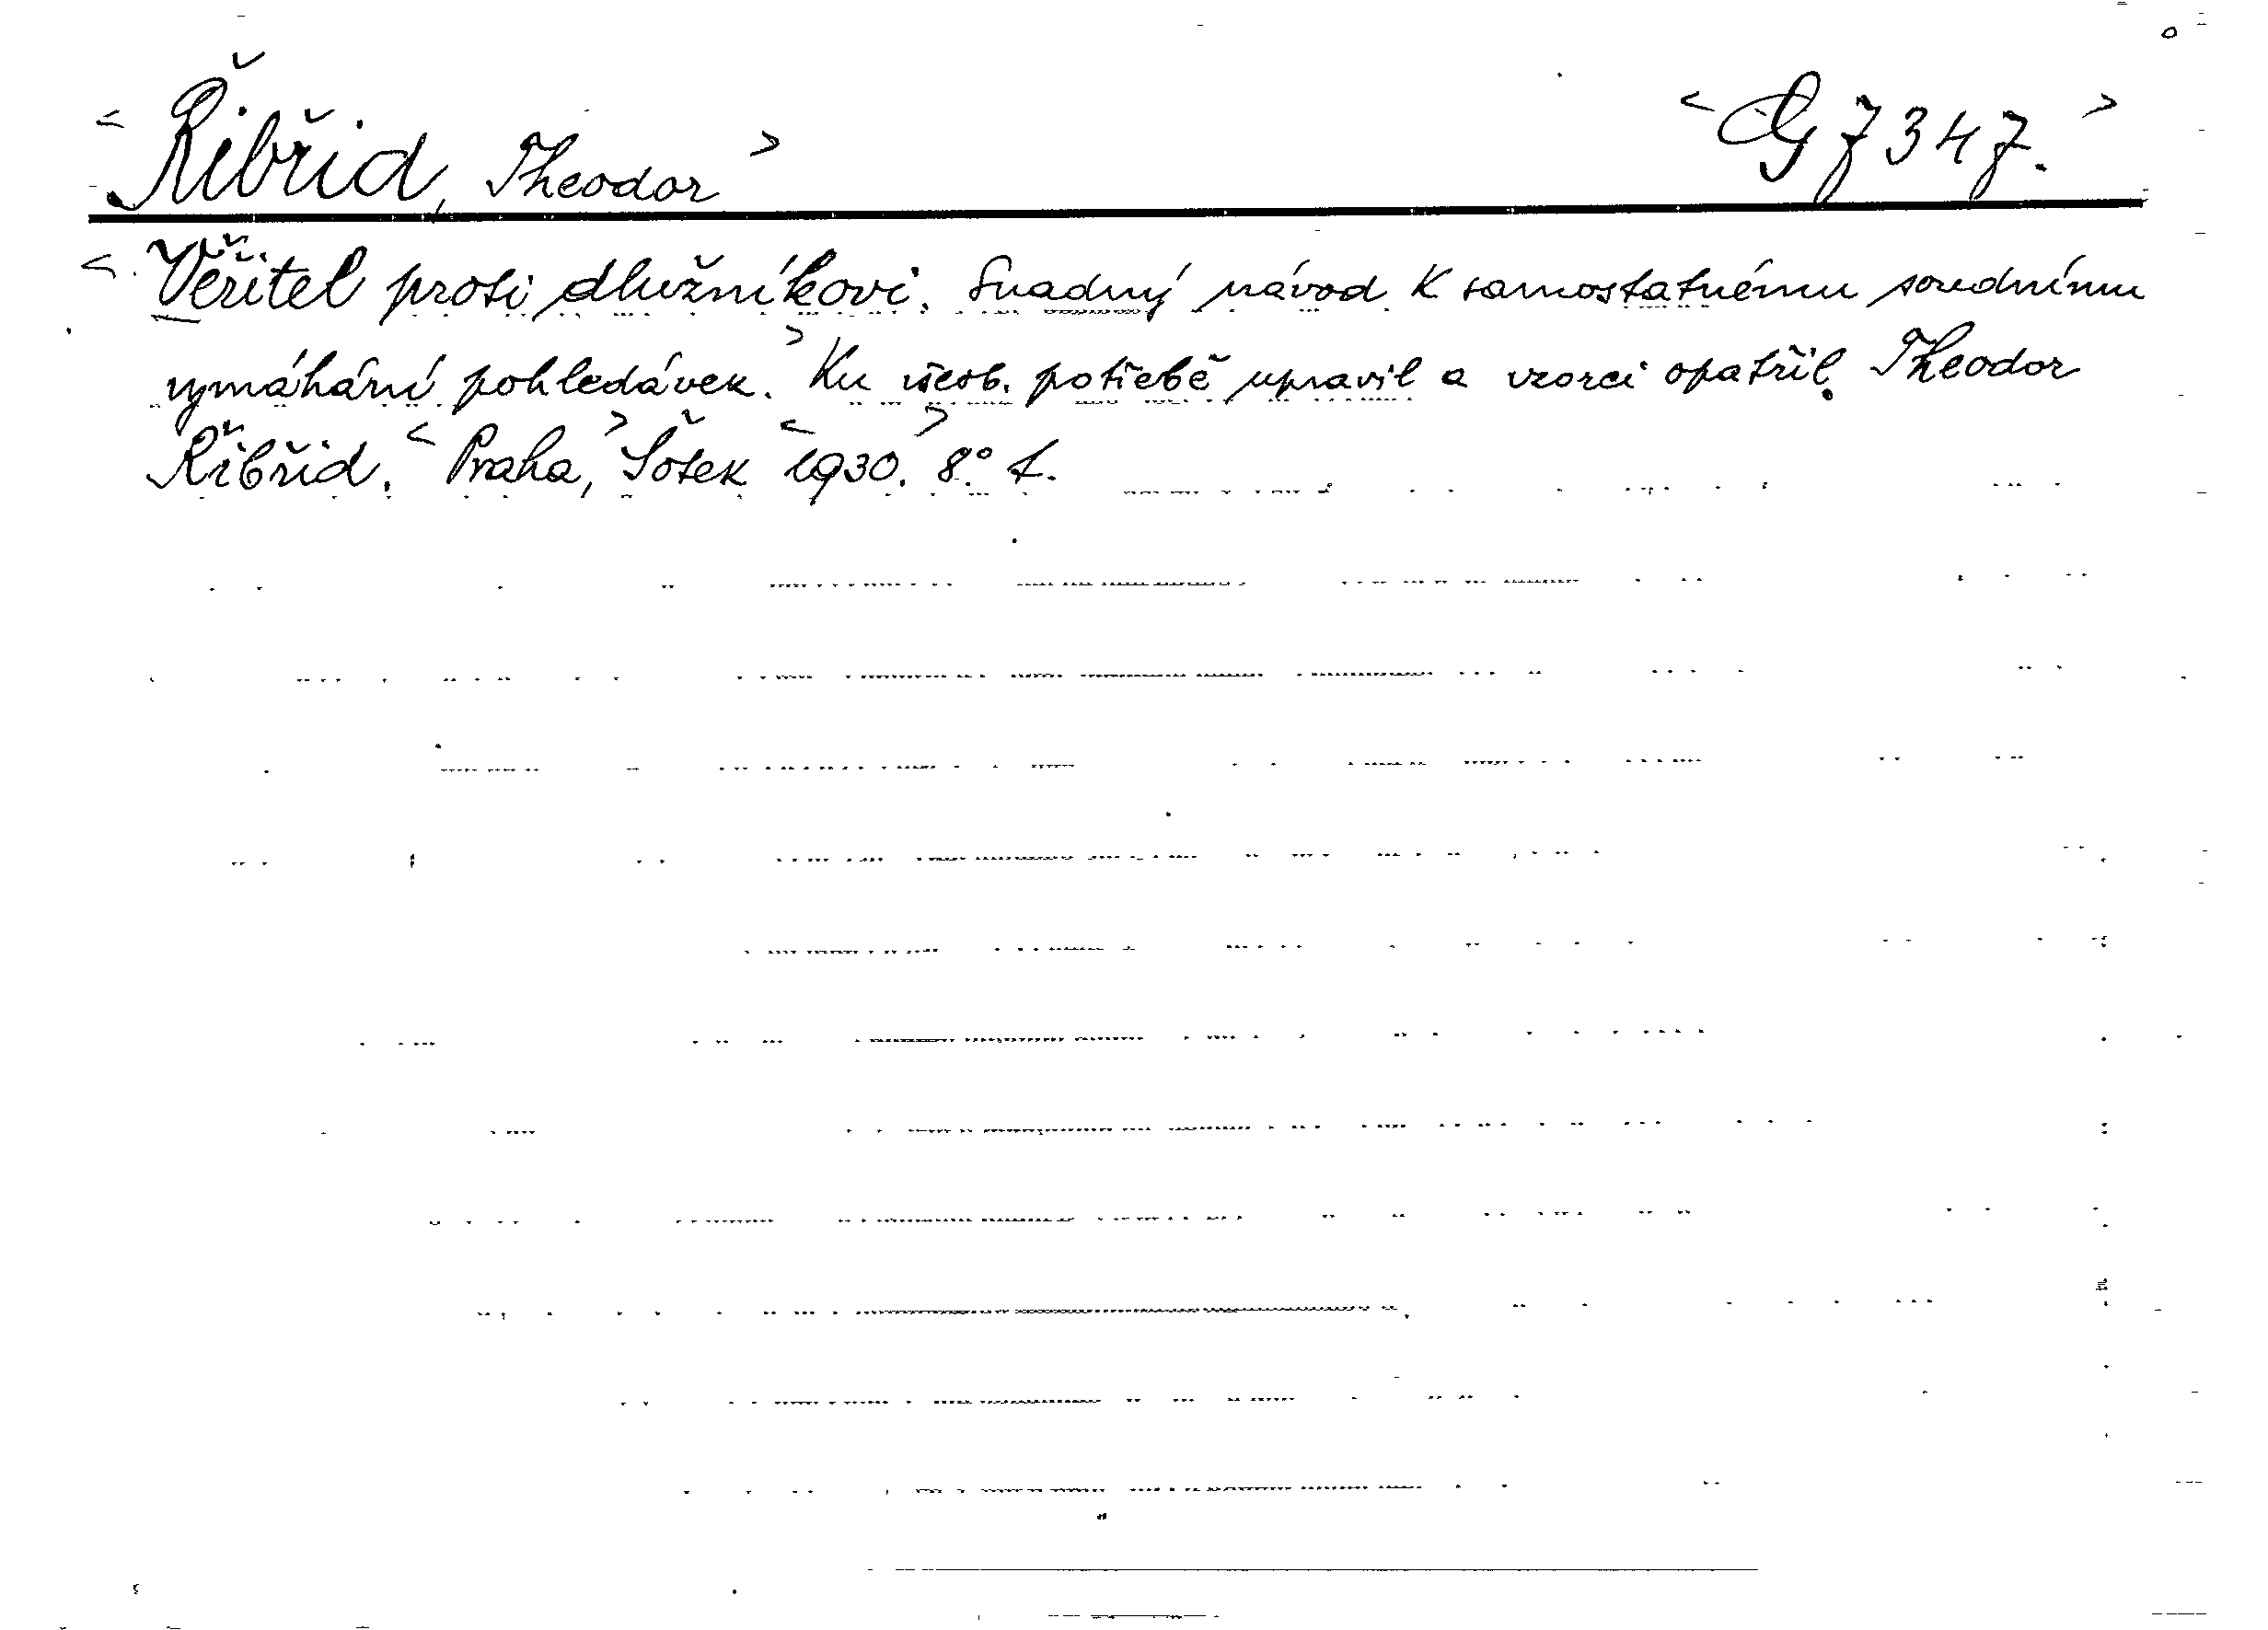 <Řibřid, Theodor> <G 7347.>
<Věřitel proti dlužníkovi. Snadný návod k samostatnému soudnímu
vymáhání pohledávek.> Ku všeob. potřebě upravil a vzorci opatřil Theodor
Řibřid. <Praha,> Šotek <1930.> 8.°